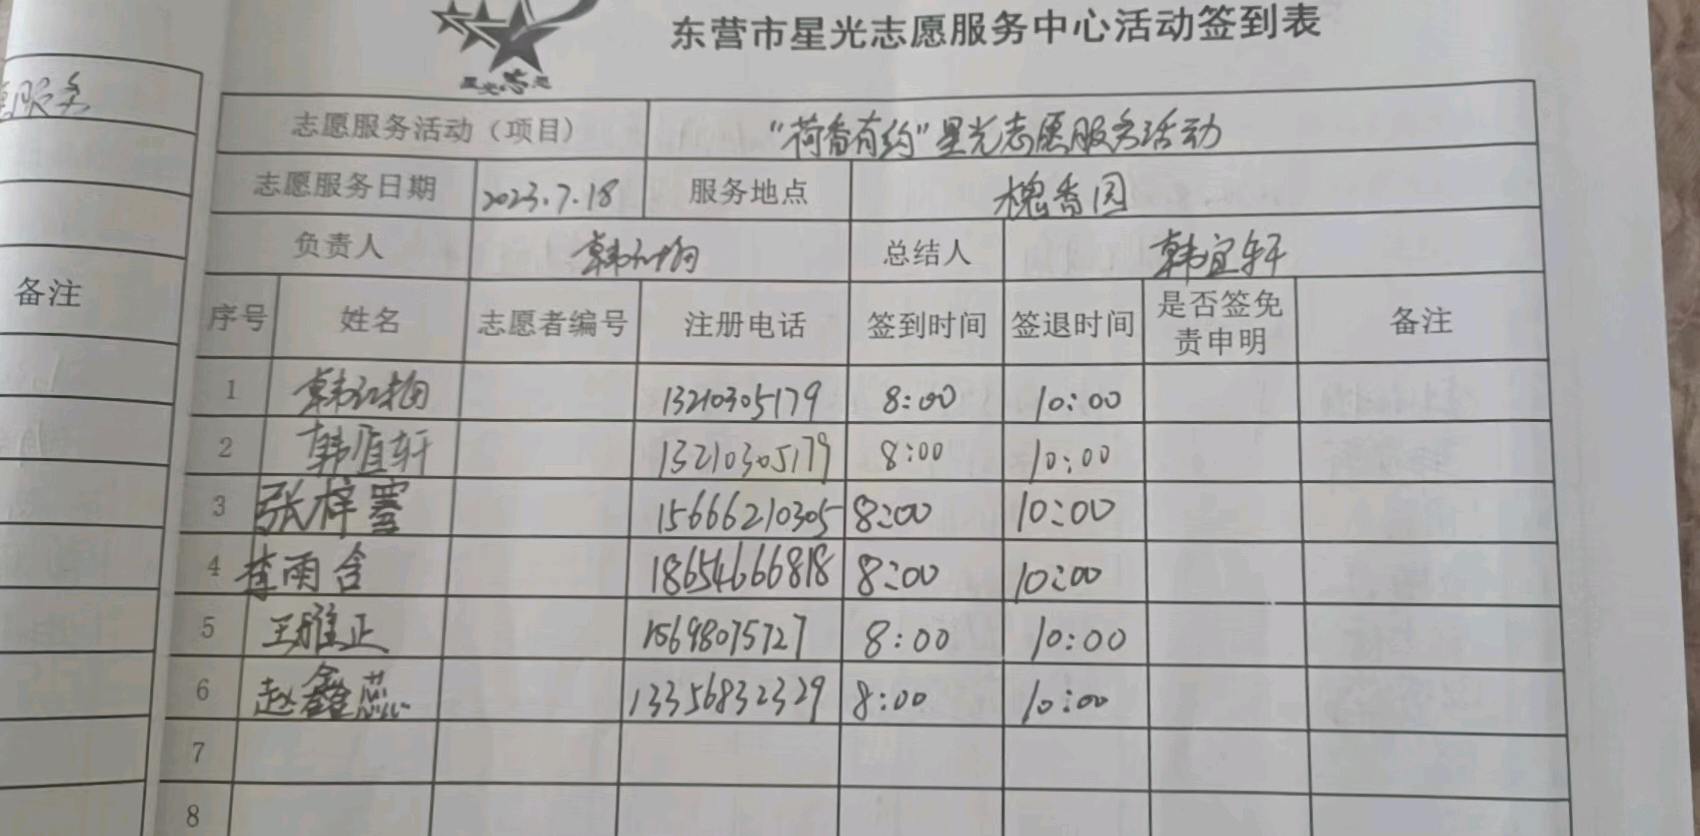 东营市星光志愿服务中心活动签到表
星光志愿
服务
志愿服务活动（项目） “荷香有约”星光志愿服务活动
志愿服务日期 2023.7.18 服务地点 槐香园
负责人 韩红梅 总结人 韩宜轩
备注
序号 姓名 志愿者编号 注册电话 签到时间 签退时间 是否签免责申明 备注
1 韩红梅 13210305179 8:00 10:00
2 韩宜轩 13210305179 8:00 10:00
3 张梓 15666210305 8:00 10:00
4 李雨含 18654666818 8:00 10:00
5 王雅正 15698075727 8:00 10:00
6 赵鑫蕊 13356832329 8:00 10:00
7
8